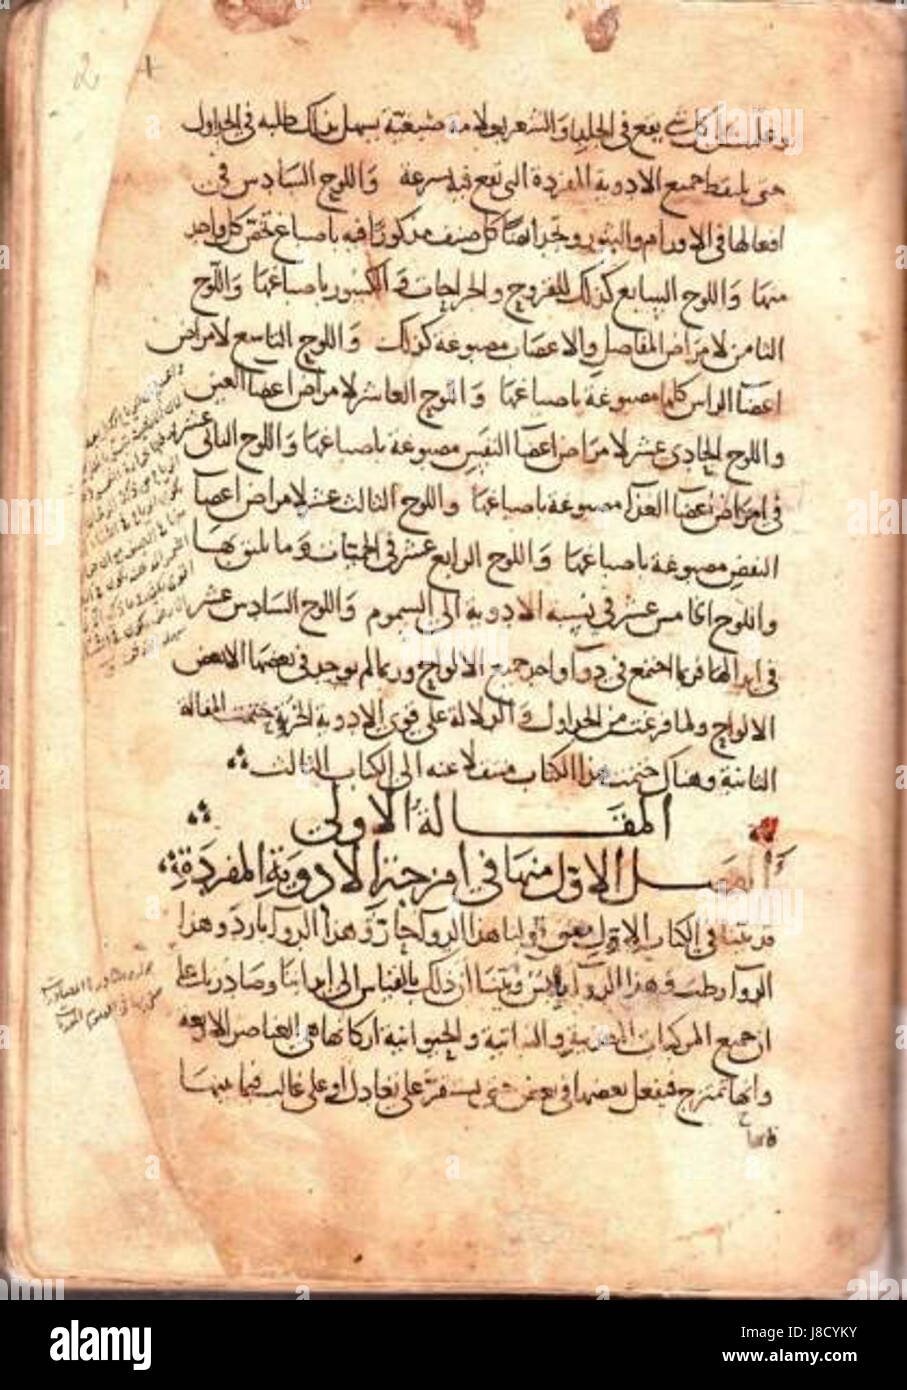 2
وعلمت كل شئ يقع في الجلد والشعر بعلامة صبغية يسهل بذلك طلبه في الجداول
حتى يلتقط جميع الادوية المفردة التي تقع فيه بسرعة واللوح السادس في
افعالها في الاورام والبثور وتجد ايضا كل صنف مذكورا فيه باصباغ تخص كل واحد
منها واللوح السابع كذلك للقروح والجراحات والكسور باصباغها واللوح
الثامن لامراض المفاصل والاعصاب مصبوغة كذلك واللوح التاسع لامراض
اعضا الراس كلها مصبوغة باصباغها واللوح العاشر لامراض اعضا العين
واللوح الحادي عشر لامراض اعضا النفس مصبوغة باصباغها واللوح الثاني عشر
في امراض اعضا الغذا مصبوغة باصباغها واللوح الثالث عشر لامراض اعضا
النفض مصبوغة باصباغها واللوح الرابع عشر في الحميات وما يليق بها
واللوح الخامس عشر في نسبة الادوية الى السموم واللوح السادس عشر
في ابدالها فربما اجتمع في دوآ واحد جميع الالواح وربما لم يوجد في بعضها الا بعض
الالواح ولما فرغت من الجداول والدلالة على قوى الادوية الجزية ختمت المقالة
الثانية وهناك ختمت هذا الكتاب منتقلا عنه الى الكتاب الثالث
المقالة الاولى
الفصل الاول منها في امزجة الادوية المفردة
قد بينا في الكتاب الاول معنى قولنا هذا الدوآ حار وهذا الدوآ بارد وهذا
الدوآ رطب وهذا الدوآ يابس وبينا ان ذلك بالقياس الى ابداننا وصادرنا على
ان جميع المركبات المعدنية والنباتية والحيوانية اركانها هي العناصر الاربعة
وانها تمتزج فيفعل بعضها في بعض حتى يستقر على تعادل او على غالب فيما بينها
alamy
Image ID: J8CYKY
www.alamy.com